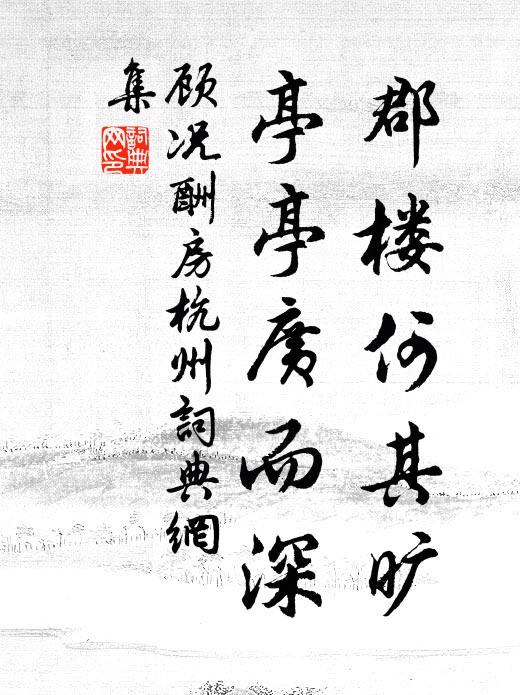 郡楼何其旷
亭亭广而深
顾况酬房杭州詞典網
集
詞典
网印